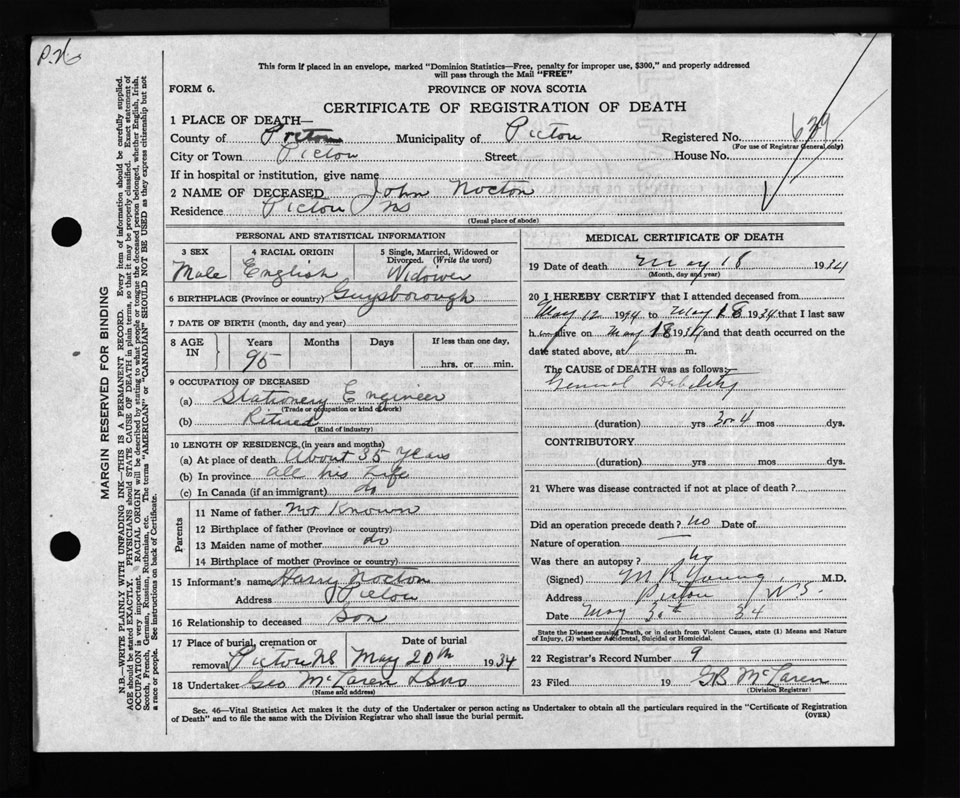 P.N
This form if placed in an envelope, marked "Dominion Statistics—Free, penalty for improper use, $300," and properly addressed
will pass through the Mail "FREE"
FORM 6.
PROVINCE OF NOVA SCOTIA
CERTIFICATE OF REGISTRATION OF DEATH
1 PLACE OF DEATH—
County of Picton Municipality of Picton Registered No. 629
(For use of Registrar General only)
City or Town Picton Street House No.
If in hospital or institution, give name
2 NAME OF DECEASED John Nocton
Residence Picton NS
(Usual place of abode)
PERSONAL AND STATISTICAL INFORMATION
3 SEX 4 RACIAL ORIGIN 5 Single, Married, Widowed or
Divorced. (Write the word)
Male English Widower
6 BIRTHPLACE (Province or country) Guysborough
7 DATE OF BIRTH (month, day and year)
8 AGE IN Years Months Days If less than one day,
95 hrs. or min.
9 OCCUPATION OF DECEASED
(a) Stationery Engineer
(Trade or occupation or kind of work)
(b) Retired
(Kind of industry)
10 LENGTH OF RESIDENCE (in years and months)
(a) At place of death About 35 Years
(b) In province all his Life
(c) In Canada (if an immigrant) do
Parents
11 Name of father Not Known
12 Birthplace of father (Province or country)
13 Maiden name of mother do
14 Birthplace of mother (Province or country)
15 Informant's name Harry Nocton
Address Picton
16 Relationship to deceased Son
17 Place of burial, cremation or Date of burial
removal Picton NS May 20th 1934
18 Undertaker Geo McLaren & Sons
(Name and address)
MEDICAL CERTIFICATE OF DEATH
19 Date of death May 18 1934
(Month, day and year)
20 I HEREBY CERTIFY that I attended deceased from
May 12 1934 to May 18 1934 that I last saw
h im alive on May 18 1934 and that death occurred on the
date stated above, at m.
The CAUSE of DEATH was as follows:
General Debility
(duration) yrs 3 or 4 mos dys.
CONTRIBUTORY
(duration) yrs mos dys.
21 Where was disease contracted if not at place of death?
Did an operation precede death? no Date of
Nature of operation —
Was there an autopsy?
(Signed) M R Young, M.D.
Address Picton N.S.
Date May 30th 34
State the Disease causing Death, or in death from Violent Causes, state (1) Means and Nature
of Injury, (2) whether Accidental, Suicidal or Homicidal.
22 Registrar's Record Number 9
23 Filed 19 GB McLaren
(Division Registrar)
Sec. 46—Vital Statistics Act makes it the duty of the Undertaker or person acting as Undertaker to obtain all the particulars required in the "Certificate of Registration
of Death" and to file the same with the Division Registrar who shall issue the burial permit.
(OVER)
MARGIN RESERVED FOR BINDING
N.B.—WRITE PLAINLY WITH UNFADING INK—THIS IS A PERMANENT RECORD. Every item of information should be carefully supplied.
AGE should be stated EXACTLY. PHYSICIANS should STATE CAUSE OF DEATH in plain terms, so that it may be properly classified. Exact statement of
OCCUPATION is very important. RACIAL ORIGIN will be described by stating to what people or tongue the deceased person belonged, whether English, Irish,
Scotch, French, German, Russian, Ruthenian, etc. The terms "AMERICAN" or "CANADIAN" SHOULD NOT BE USED as they express citizenship but not
a race or people. See instructions on back of Certificate.